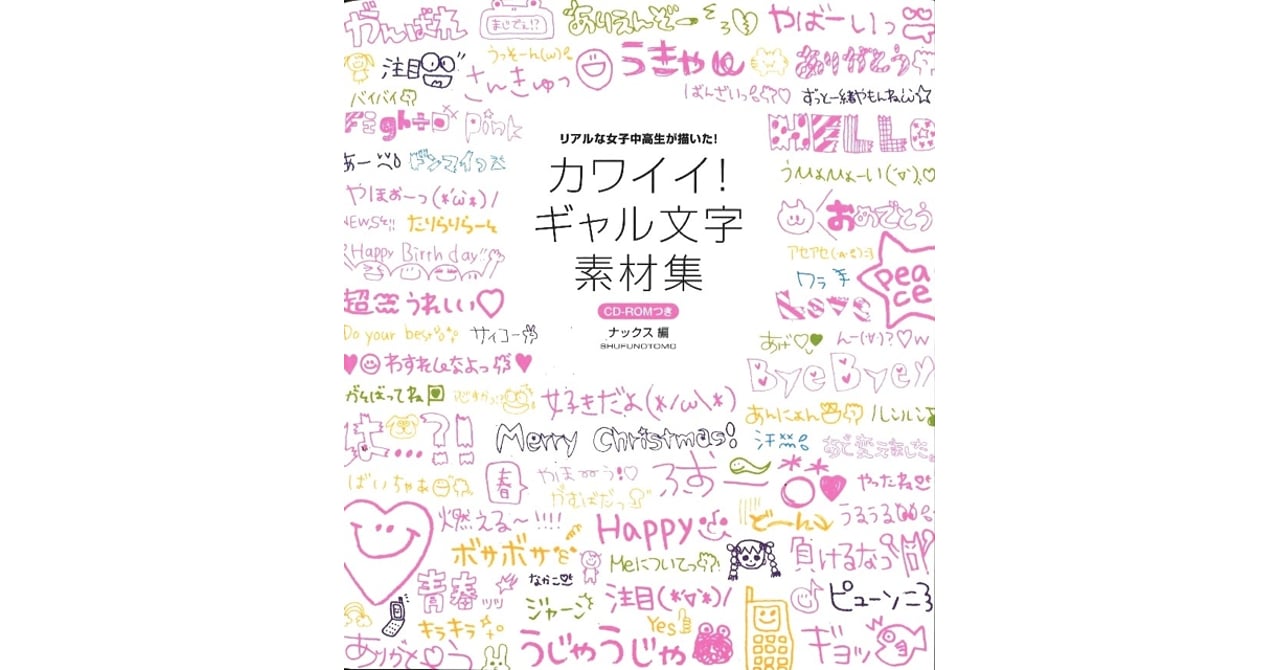 がんばれ
まじでぇ!?
ありえんぞー
やばーいっ
注目
うっそーん(ω)
さんきゅっ
うきゃ
ありがとう
バイバイ
ばんざいっ
ずっと一緒やもんね
Fight
Pink
リアルな女子中高生が描いた!
HELLO
あー
ドンマイっ
カワイイ!
ギャル文字
素材集
うひょひょーい(´▽`)♡
やほぉーっ(*´ω`*)/
NEWS!!
たりらりらーん
おめでとう
Happy Birthday!!
アセアセ
ワラ
Peace
超
うれしい♡
CD-ROMつき
Love
Do your best
サイコー
ナックス 編
SHUFUNOTOMO
あげ♡♥
んー(・∀・)?♡w
わすれんなよっ
ByeBye
がんばってね
好きだよ(*/ω\*)
あんにょん
ルンルン♪
は…?!
Merry Christmas!
汗
あど変えました。
ばいちゃあ
春
やほ
う!♡
ふおー
やったね
がむばだっ
燃える〜!!!!
Happy
どーん
うるうる
ボサボサ
Meについてっ
負けるなっ
青春ッッ
なかこ
ジャーン
注目(*´∇`*)/
ピューン
キラキラ
Yes
ありがとう
うじゃうじゃ
ギョッ